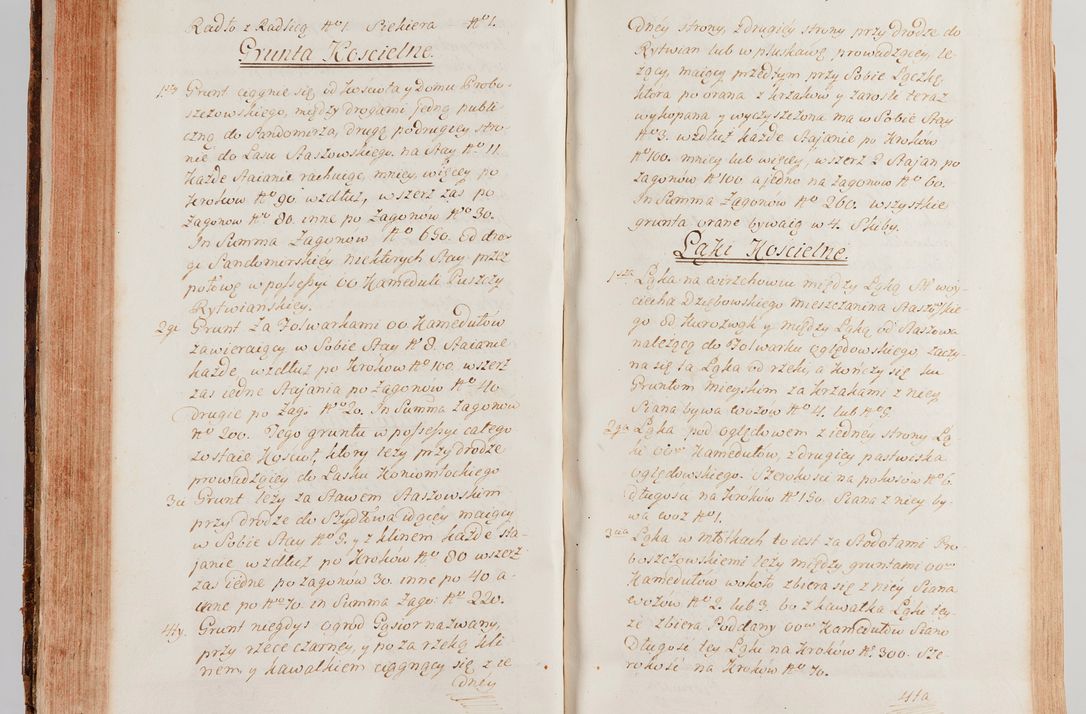 Radło z Radlicą No 1. Siekiera No 1.
Grunta Koscielne.
1szy Grunt ciągnie się od Koscioła y Domu Probo-
szczowskiego, między drogami jedną publi-
czną do Sandomirza, drugą po drugiey stro-
nie do Lasu Staszowskiego na Stay No 11.
Każde Staianie rachuiąc, mniey, więcey po
Krokow No 90 wzdłuż, wszerz zaś po
zagonow No 80. inne po Zagonów No 30.
In Summa Zagonów No 650. Od dro-
gi Sandomirskiey niektorych Stay przez
połowę w possessyi OO Kameduli Puszczy
Rytwianskiey.
2gi Grunt za Folwarkami OO Kamedułów
zawieraiący w Sobie Stay No 8. Staianie
każde, wzdłuż po Kroków No 100. wszerz
zas iedne Stajania po zagonow No 40
drugie po Zag: No 20. In Summa zagonow
No 200. Tego gruntu w possessyi całego
zostaie Koscioł, ktory leży przy drodze
prowadzącey do Lasku Koniomłockiego
3ci Grunt leży za Stawem Staszowskim
przy drodze do Szydłowa idący maiący
w Sobie Stay No 5. y z klinem każde sta-
janie wzdłuż po Kroków No 80 wszerz
zas iedne po zagonów 30. inne po 40 a-
inne po No 70. in Summa Zago: No 220.
4ty. Grunt niegdys ogrod Gąsior nazwany,
przy rzece czarney, y po za rzeką kli-
nem, y kawałkiem ciągnący się z ie
dney
dney strony, z drugiey strony przy drodze do
Rytwian lub w pluskawę prowadzącey, le-
żący, maiący przedtym przy Sobie Łączkę,
ktora po orana z krzakow y zarosli teraz
wykopana y wyczyszczona ma w Sobie Stay
No 3. wzdłuż każde Stajanie po Kroków
No 100. mniey lub więcey, wszerz 2 Stajan po
zagonów No 100 a jedno na zagonów No 60.
In Summa Zagonow No 260. wszystkie
grunta orane bywaią w 4. Skiby.
Łąki Koscielne.
1sza Łąka na wirzchowiu między Łąką JM woy-
ciecha Dziębowskiego mieszczanina Staszowskie-
go od Kurozwęk y między Łąką od Staszowa
należącą do Folwarku oględowskiego, zaczy-
na się ta Łąka od rzeki, a Kończy się ku
Gruntom mieyskim za krzakami z niey
Siana bywa wozow No 4. lub No 5.
2ga Łąka pod oględowem z iedney strony Łą-
ki OOrw Kamedułów, z drugiey pastwiska
oględowskiego. Szerokosci na pokosów No 6.
długosci na kroków No 150. Siana z niey by-
wa woz No 1.
3cia Łąka w młakach to iest za Stodołami Pro-
boszczowskiemi leży między gruntami OOrw
Kamedułow wokoło zbiera się z niey Siana
wozow No 2. lub 3. bo z kawałka Łąki tey-
że zbiera Poddany OOrw Kamedułow Siano
Długość tey Łąki na Kroków No 300. Sze-
rokość na Kroków No 70.
4ta